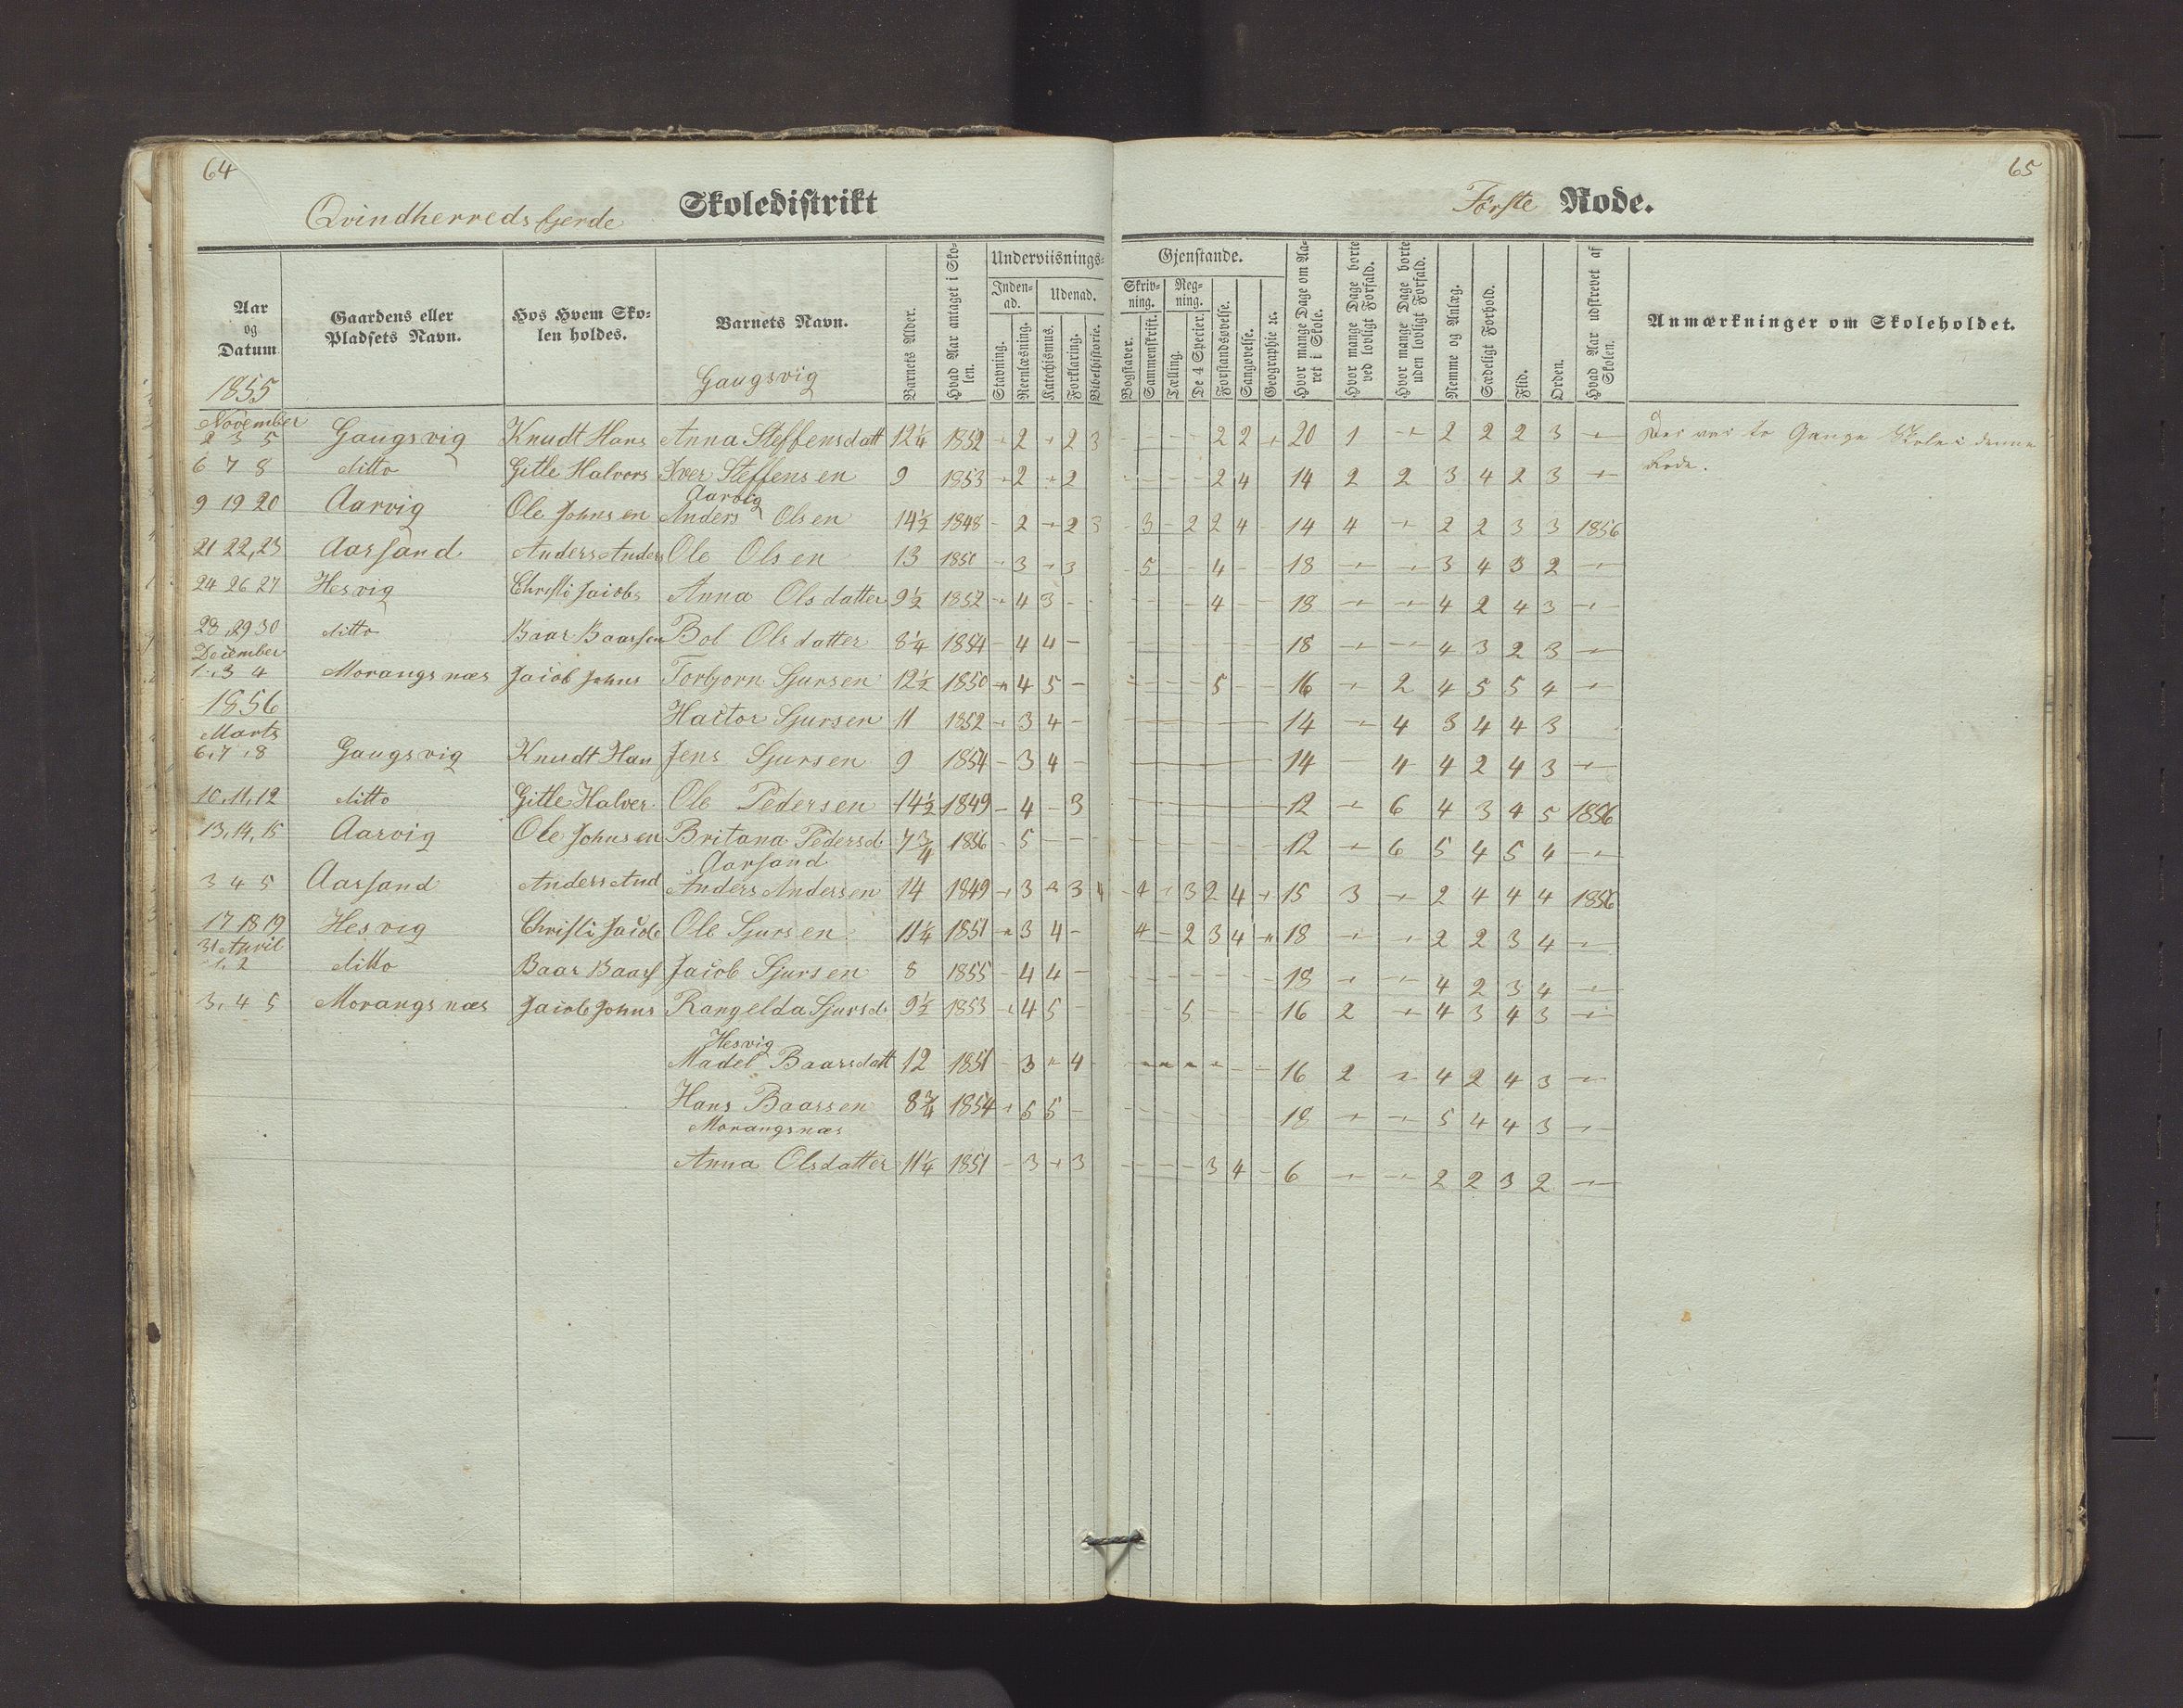 64
Qvindherredsfjerde Skoledistrikt
Aar og Datum
Gaardens eller Pladsets Navn.
Hos Hvem Skolen holdes.
Barnets Navn.
Barnets Alder.
Hvad Aar antaget i Skolen.
Underviisnings-
Indenad.
Udenad.
Stavning.
Reenlæsning.
Katechismus.
Forklaring.
Bibelhistorie.
1855
Gaugsvig
November
2 3 5 Gaugsvig Knudt Hans Anna Steffensdatt 12¼ 1852 - 2 - 2 3
6 7 8 ditto Gitle Halvors Iver Steffensen 9 1853 - 2 - 2
Aarvig
9 19 20 Aarvig Ole Johnsen Anders Olsen 14½ 1848 - 2 - 2 3
21 22, 23 Aarsand Anders Anders Ole Olsen 13 1850 - 3 - 3
24 26 27 Hesvig Christi Jacobs Anna Olsdatter 9½ 1852 - 4 3 -
28, 29 30 ditto Baar Baarsen Bol Olsdatter 8¼ 1854 - 4 4 -
December
1. 3 4 Morangsnæs Jacob Johns Torbjorn Sjursen 12½ 1850 - 4 5 -
1856
Hactor Sjursen 11 1852 - 3 4 -
Marts
6, 7, 8 Gaugsvig Knudt Han Jens Sjursen 9 1854 - 3 4 -
10, 11, 12 ditto Gitle Halver Ole Pedersen 14½ 1849 - 4 - 3
13, 14, 15 Aarvig Ole Johnsen Britana Pedersd. 7¾ 1856 - 5 - -
Aarsand
3 4 5 Aarsand Anders And Anders Andersen 14 1849 - 3 - 3 4
17 18 19 Hesvig Christi Jacob Ole Sjursen 11¼ 1851 - 3 4 -
31 April
1. 2 ditto Baar Baars Jacob Sjursen 8 1855 - 4 4 -
3, 4 5 Morangsnæs Jacob Johns Rangelda Sjursd. 9½ 1853 - 4 5 -
Hesvig
Madel Baarsdatt 12 1851 - 3 - 4
Hans Baarsen 8¾ 1854 - 5 5 -
Morangsnæs
Anna Olsdatter 11¼ 1851 - 3 - 3
65
Første Rode.
Gjenstande.
Skrivning.
Regning.
Bogstaver.
Sammenskrift.
Tælling.
De 4 Specier.
Forstandsøvelse.
Sangøvelse.
Geographie &c.
Hvor mange Dage om Aaret i Skole.
Hvor mange Dage borte ved lovligt Forfald.
Hvor mange Dage borte uden lovligt Forfald.
Nemme og Anlæg.
Sædeligt Forhold.
Flid.
Orden.
Hvad Aar udskrevet af Skolen.
Anmærkninger om Skoleholdet.
- - - - 2 2 - 20 1 - 2 2 2 3 - Der var to Gange Skole i denne
Rode.
- - - - 2 4 14 2 2 3 4 2 3 -
- 3 - 2 2 4 - 14 4 - 2 2 3 3 1856
- 5 - - 4 - - 18 - - 3 4 3 2 -
- - - - 4 - - 18 - - 4 2 4 3 -
- - - - - - - 18 - - 4 3 2 3 -
- - - - 5 - - 16 - 2 4 5 5 4 -
- - - - - - - 14 - 4 3 4 4 3
- - - - - - - 14 4 4 2 4 3 -
- - - - - - - 12 - 6 4 3 4 5 1856
- - - - - - - 12 - 6 5 4 5 4 -
- 4 - 3 2 4 - 15 3 - 2 4 4 4 1856
4 - 2 3 4 - 18 - - 2 2 3 4 -
- - - - - - - 18 - - 4 2 3 4 -
- - - 5 - - - 16 2 - 4 3 4 3 -
- - - - - - - 16 2 - 4 2 4 3 -
- - - - - - - 18 - - 5 4 4 3 -
- - - - 3 4 - 6 - - 2 2 3 2 -